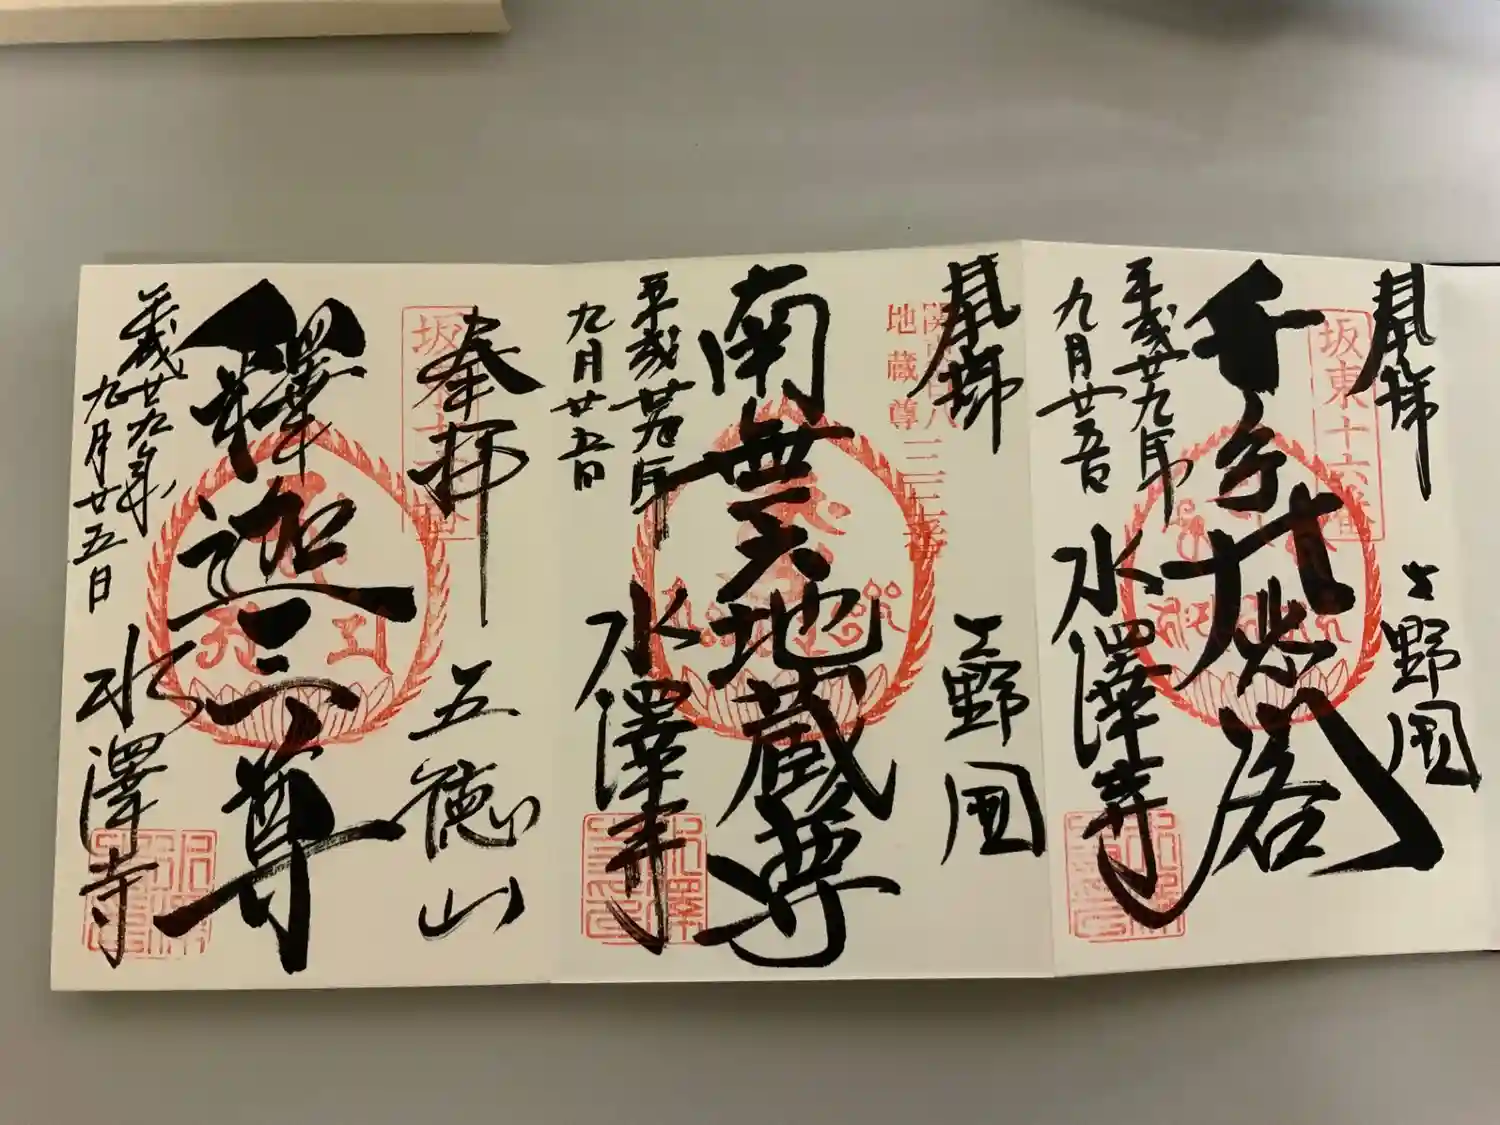 坂東十六番
上野国
千手大悲閣
平成廿九年
九月廿五日
水澤寺
地蔵尊
三二三番
上野国
南無六地蔵尊
平成廿九年
九月廿五日
水澤寺
奉拝
五徳山
釋迦三尊
平成廿九年
九月廿五日
水澤寺